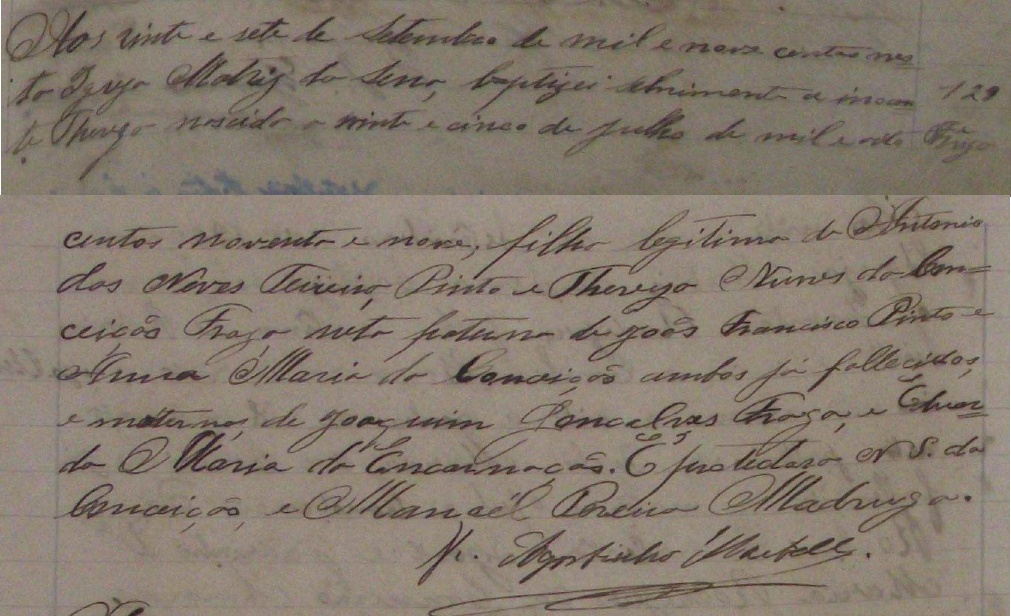 Aos vinte e sete de Setembro de mil e nove centos nes
ta Igreja Matriz da Sena, baptizei solenimente a inocen
te Thereza nascida a vinte e cinco de julho de mil e oito
129
Thereza
centos noventa e nove, filha legitima de Antonio
das Neves Teixeira Pinto e Thereza Nunes da Con=
ceição Fraga neta paterna de João Francisco Pinto e
Anna Maria da Conceição ambos já fallecidos,
e materna, de Joaquim Gonçalves Fraga, e
da Maria da Encarnação. E protectora N. S. da
Conceição, e Manoél Pereira Madruga.
Agostinho Martelli.